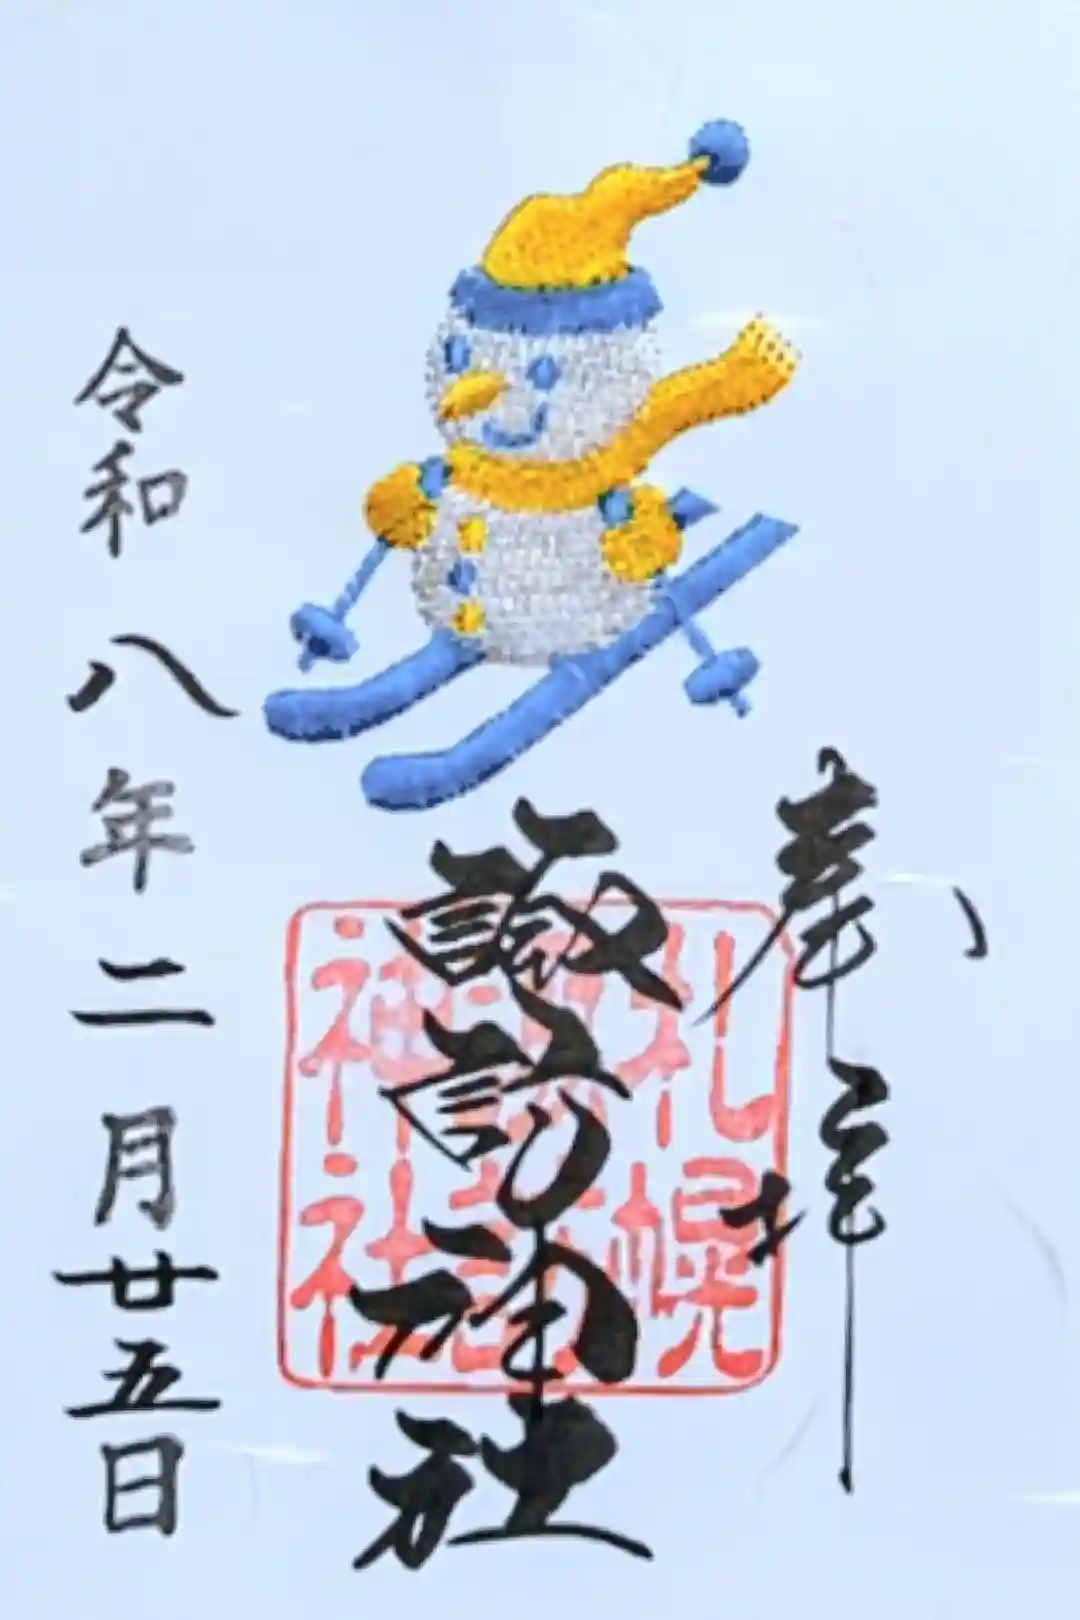 奉拝
諏訪神社
札幌
諏訪
神社
令和八年二月廿五日